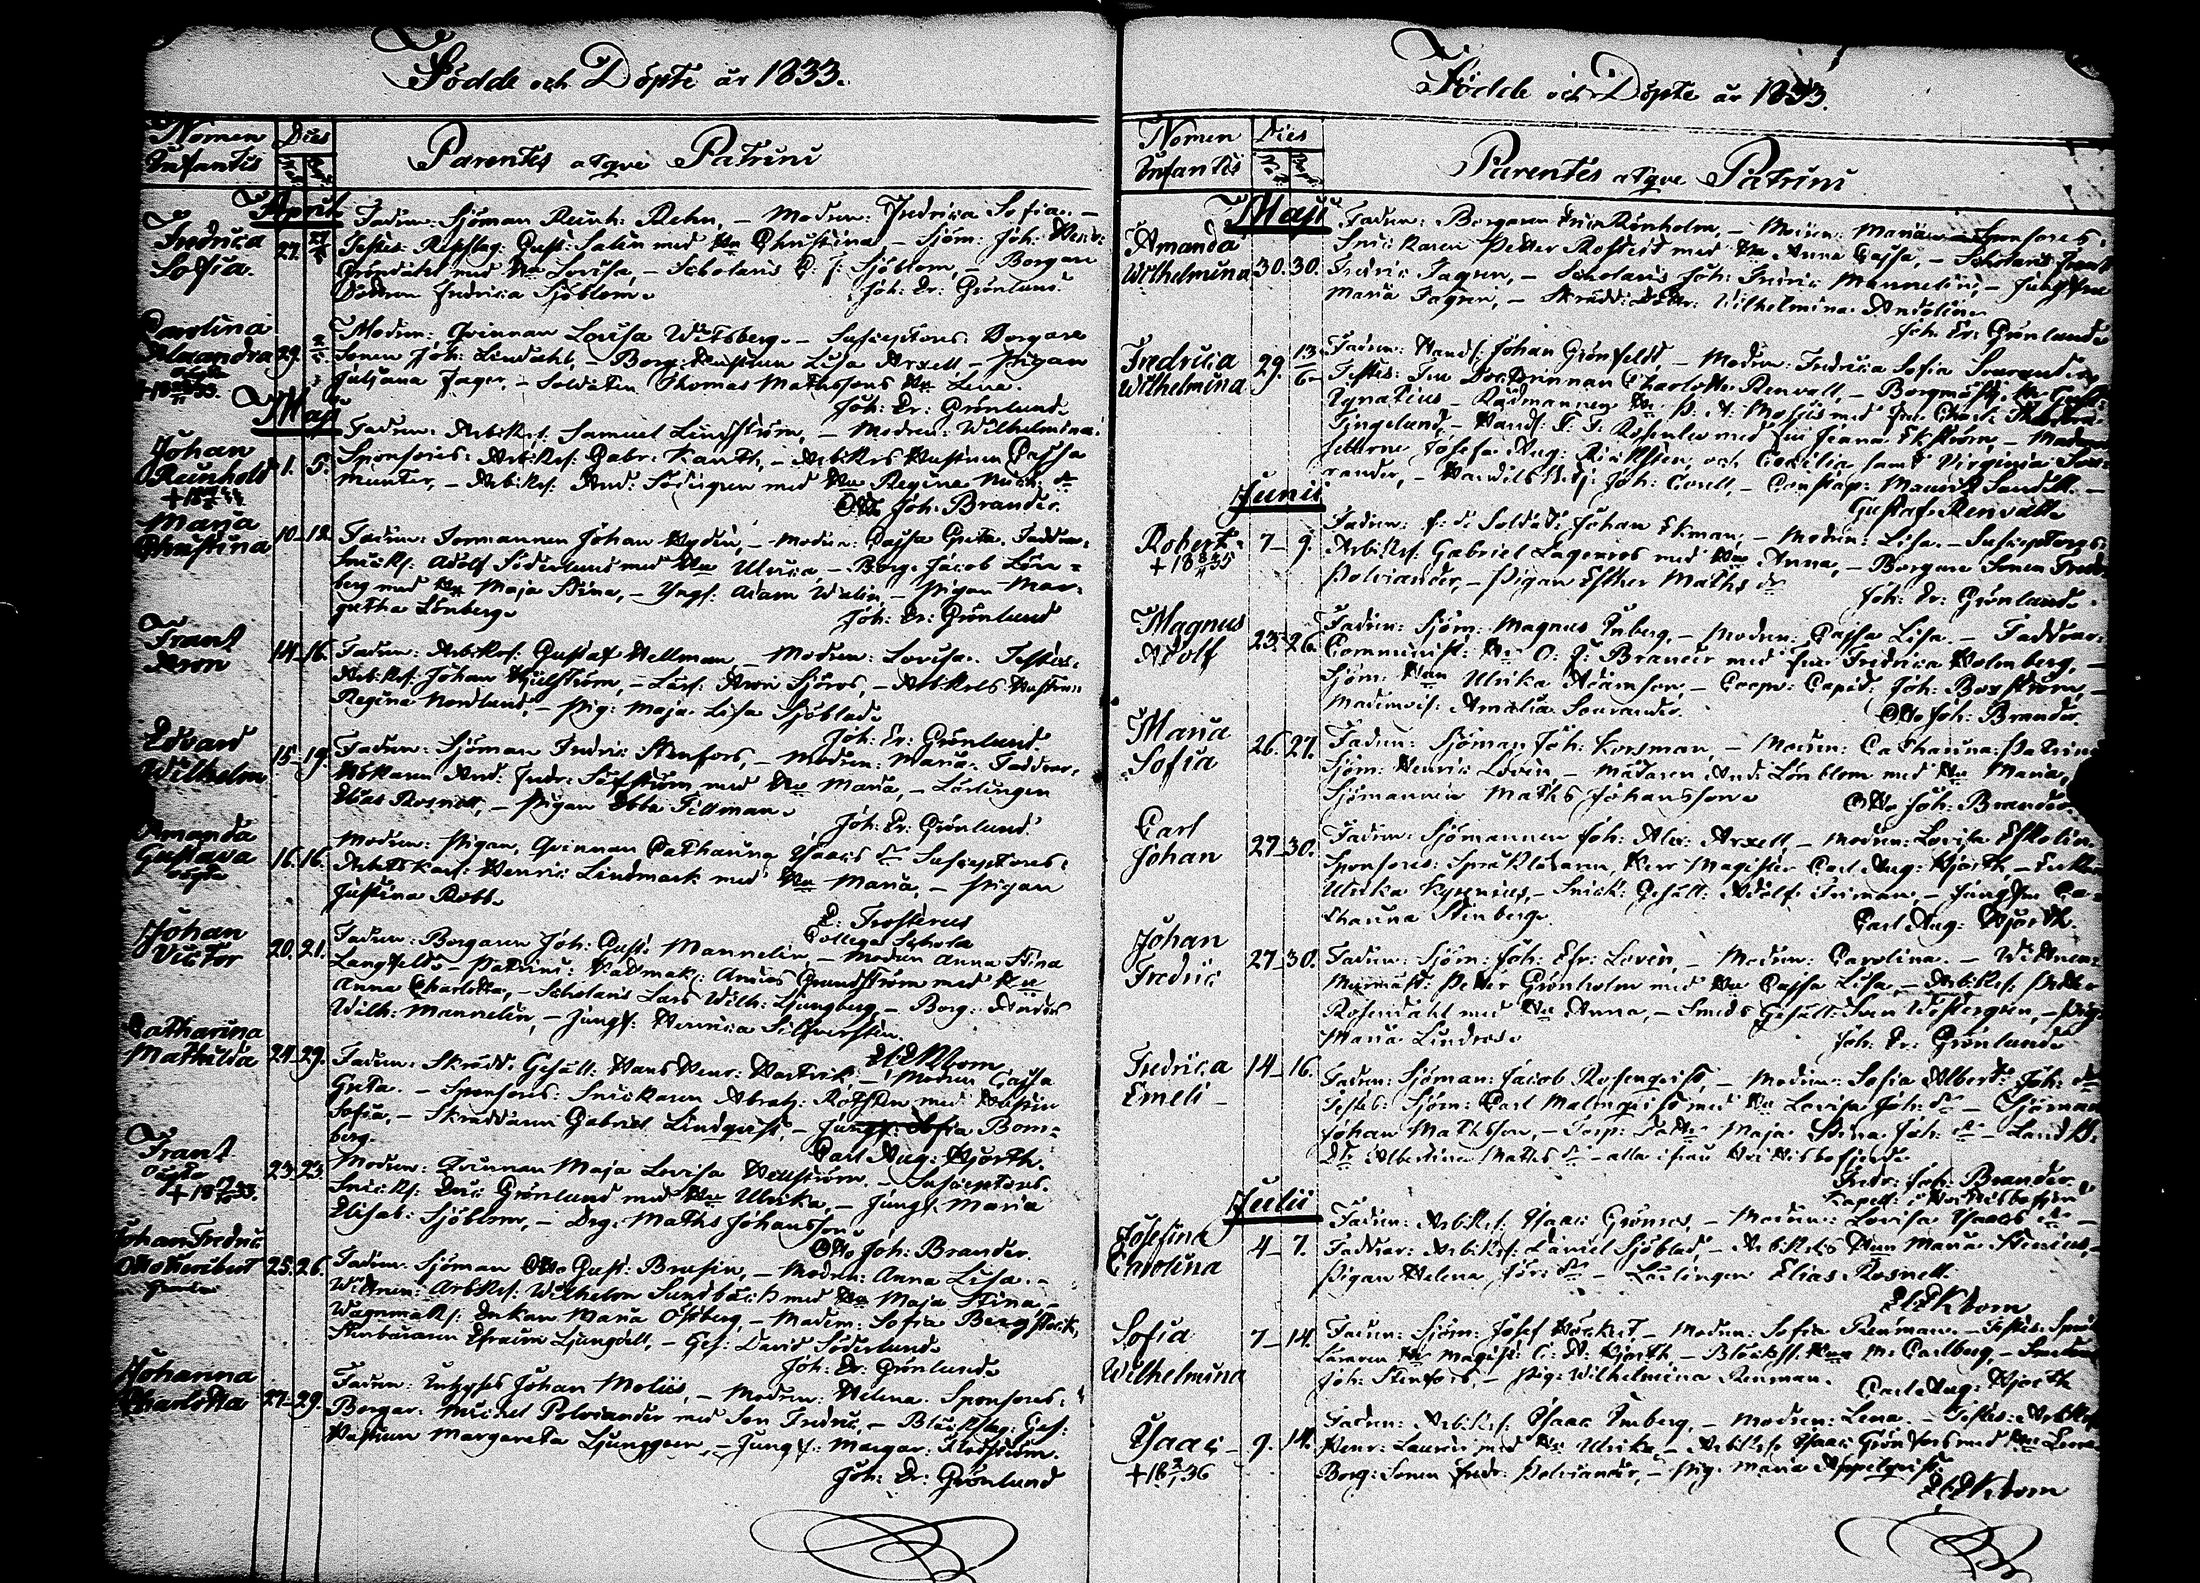 Födde och Döpte år 1833.
Nomen Infantis
Dies
Parentes atque Patrini
April
Fredrica Sofia.
27.
Fadren: Sjöman Reinh: Rehn, – Modren: Fredrica Sofia. –
Testes: Repslag: Gust: Salin med Hu Christina, – Sjöm: Joh: Henr:
Gröndahl med Hu Lovisa, – Scholaris C. J. Sjöblom, – Borgare
Dottren Fredrica Sjöblom.
Joh: Er: Grönlund.
Carolina Alexandra
29.
Modren: Qvinnan Lovisa Witsberg. – Susceptores: Borgare
Sonen Joh: Lindahl, – Borg: Hustrun Lisa Arxell, – Pigan
Juljana Jager, – Soldaten Thomas Mathssons Hu Lena.
Joh: Er: Grönlund.
Maji
Johan Reinhold
1. 5.
Fadren: Arbkrl: Samuel Lindström, – Modren: Wilhelmina.
Sponsores: Arbkrl: Gabr: Kanth, – Arbkrls Hustrun Cajsa
Munter, – Arbkrl: And: Södergren med Hu Regina Mich: dr
Otto Joh: Brander.
Maria Christina
10–12.
Fadren: Formannen Johan Hydén, – Modren: Cajsa Greta. Faddrar:
Snickr: Adolf Söderlund med Hu Ulrica, – Borg: Jacob Lön=
berg med Hu Maja Stina, – Yngl: Adam Walin, – Pigan Mar=
gretha Lönberg.
Joh: Er: Grönlund
Frant Aron
14–16.
Fadren: Arbkrl: Gustaf Hellman, – Modren: Lovisa. Testes:
Arbkrl: Johan Kjellström, – Lärl: Aron Sjöros, – Arbkrls Hustrun
Regina Nordlund, – Pig: Maja Lisa Sjöblad.
Joh: Er: Grönlund.
Edvard Wilhelm
15–19.
Fadren: Sjöman Fredric Stenfors, – Modren: Maria. Faddrar:
And: Fredr: Söfström med Hu Maria, – Lärlingen
Elias Rosnell, – Pigan Ebba Tillman.
Joh: Er: Grönlund.
Amanda Gustava
oägta
16. 16.
Modren: Pigan, Qvinnan Catharina Isaacs dr Susceptores:
Arbetskarl: Henric Lindmark med Hu Maria, – Pigan
Justina Robb.
E: Frosterus
Collega Schola
Johan Victor
20. 21.
Fadren: Borgaren Joh: Gust: Mannelin, – Modren Anna Stina
Langfeldt – Patrini: Hattmak: Anders Grundström med Hu
Anna Charlotta, – Scholaris Lars Wilh: Ljungberg, – Borg: Anders
Wilh: Mannelin, – Jungf: Henrica Silfversten.
El: Ekbom
Catharina Mathilda
24–29.
Fadren: Skrädd: Gesäll: Hans Henr: Hartvik, – Modren Cajsa
Greta. – Sponsores: Snickaren Abrah: Rothsten med Hustrun
Sofia, – Skräddaren Gabriel Lindqvist, – Jungf: Sofia Bom=
berg.
Carl Aug: Hjorth.
Frant
oägta
23. 23.
Modren: Qvinnan Maja Lovisa Hellström. – Susceptores.
Snickr: Eric Grönlund med Hu Ulrika, – Jungf: Maria
Elisab: Sjöblom, – Drg: Maths Johansson.
Otto Joh: Brander.
Johan Fredric Otto Heribert
25. 26.
Fadren: Sjöman Otto Gust: Brusin, – Modren: Anna Lisa. –
Wittnen: Arbkrl: Wilhelm Sundbäck med Hu Maja Stina, –
Wagnmakr: Enkan Maria Ostberg, – Madem: Sofia Bergstock,
Efraim Ljungdell, – Ges: David Söderlund.
Joh: Er: Grönlund.
Johanna Charlotta
27–29.
Fadren: Johan Molis, – Modren: Helena. Sponsores:
Borgar: Michel Polviander med Son Fredric, – Bläckslag: Ges:
Hustrun Margareta Ljunggren, – Jungf: Margar:
Joh: Er: Grönlund
Födde och Döpte år 1833.
Nomen Infantis
Dies
Parentes atque Patrini
Maji
Amanda Wilhelmina
30. 30.
Fadren: Borgaren Eric Rönholm, – Modren: Maria Sponsores:
Snickaren Petter Rostedt med Hu Anna Cajsa, –
Fredric Fagren, – Scholaris Joh: Fredric Mannelin, – Jungfru
Maria Fagren, – Skrädd: Dottr: Wilhelmina Andelin.
Joh: Er: Grönlund.
Fredrica Wilhelmina
29. 13/6
Fadren: Handl: Johan Grönfeldt, – Modren: Fredrica Sofia Sourander.
Testes: Fru Doctorinnan Charlotta Renvall, – Borgmäst: Hr Gust:
Ignatius – Rådmannen Hr P. A. Moselius med Fru Charl:
Fingelund, – Handl: F. F. Rosenlew med Fru Jeana Ekström, –
Josefa Aug: och Cecilia samt Virginia Sou=
rander, – Handelsbetj: Joh: Corell, – Constap: Maurit Sandell. –
Gustaf Renvall.
Junii
Robert
7– 9.
Fadren: f: d: Soldat: Johan Ekman, – Modren: Lisa. – Susceptores:
Arbkrl: Gabriel Lagerros med Hu Anna, – Borgare Sonen Fredr:
Polviander, – Pigan Esther Maths dr
Joh: Er: Grönlund.
Magnus Adolf
23–26.
Fadren: Sjöm: Magnus Enberg, – Modren: Cajsa Lisa. – Faddrar:
Comminist: Hr O: J: Brander med Fru Fredrica Holmberg, –
Sjöm: Hun Ulrika Adamson, – Coopv: Capit: Joh: Boxström, –
Mademois: Amalia Sourander.
Otto Joh: Brander.
Maria Sofia
26. 27.
Fadren: Sjöman Joh: Korsman, – Modren: Catharina. Patrini
Sjöm: Henric Lovén, – Målaren And: Lönblom med Hu Maria,
Sjömannen Maths Johansson.
Otto Joh: Brander.
Carl Johan
27–30.
Fadren: Sjömannen Joh: Alex: Arxell, – Modren: Lovisa Eskolin.
Sponsores: Språkläraren, Herr Magister Carl Aug: Hjorth, –
Ulrika Kyrenius, – Snick: Gesäll: Adolf Friman, – Jungfru Ca=
tharina Stenberg.
Carl Aug: Hjorth.
Johan Fredric
27–30.
Fadren: Sjöm: Joh: Efr: Lovén, – Modren: Carolina. – Wittnen:
Murmäst: Petter Grönholm med Hu Cajsa Lisa, – Arbkrl: Petter
Rosendahl med Hu Anna, – Smeds Gesäll: Sven Westergren, – Pig:
Maria Lindros.
Joh: Er: Grönlund.
Fredrica Emeli
14–16.
Fadren: Sjöman: Jacob Rosenqvist, – Modren: Sofia Albert: Joh: dr
Testes: Sjöm: Carl Malmqvist med Hu Lovisa Joh: dr – Sjöman
Johan Mathsson, – Torp: Dottr: Maja Stina Joh: dr – Landb:
Dtr Albertina Maths dr – alla ifrån Hvittisbofjerd.
Fredr: Joh: Brander.
Kapell: i Hvittisbofjerd
Julii
Josefina Carolina
4– 7.
Fadren: Arbkrl: Isaac Grönros, – Modren: Lovisa Isaacs dr –
Faddrar: Arbkrl: Daniel Sjöblad, – Arbkrls Hun Maria Stenius, –
Pigan Helena Jör: dr – Lärlingen Elias Rosnell.
El: Ekbom
Sofia Wilhelmina
7–14.
Fadren: Sjöm: Josef Höckert, – Modren: Sofia Renman. – Testes: Språk
läraren Hr Magist: C: A: Hjorth, – Hun M: Carlberg, –
Joh: Stenfors, – Pig: Wilhelmina Renman.
Carl Aug: Hjorth
Isaac
9. 14.
Fadren: Arbkrl: Isaac Enberg, – Modren: Lena. – Testes: Arbkrl
Henr: Laurén med Hu Ulrika, – Arbkrl: Isaac Grönfors med Hu Lena
Borg: Sonen Fredr: Polviander, – Pig: Maria Appelqvist.
El: Ekbom